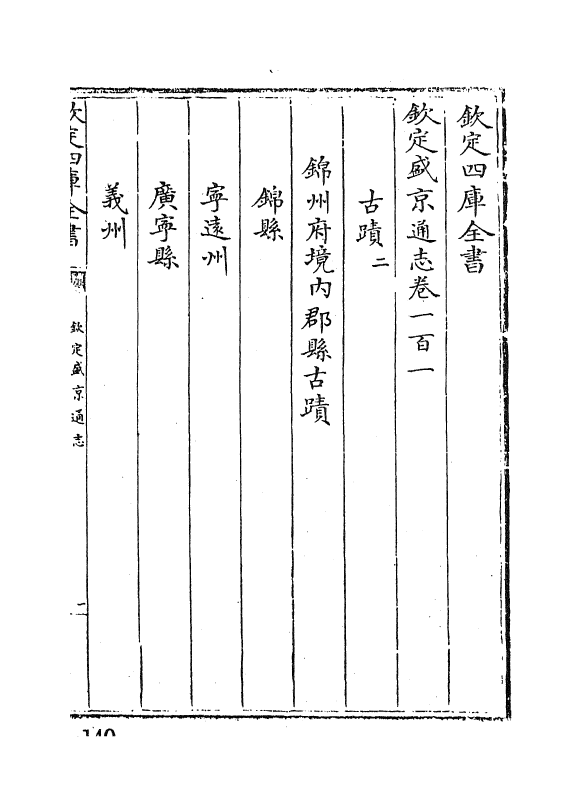 欽定四庫全書
欽定盛京通志卷一百一
古蹟二
錦州府境内郡縣古蹟
錦縣
寧遠州
廣寧縣
義州
欽定四庫全書
欽定盛京通志
一